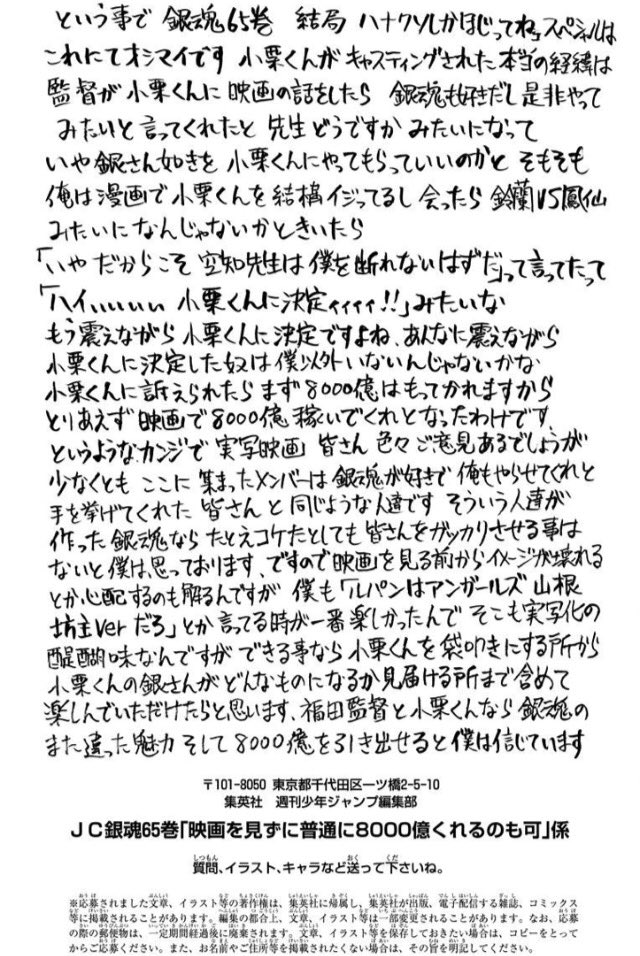 という事で 銀魂65巻 結局 ハナクソしかほじってねェスペシャルは
これにてオシマイです 小栗くんがキャスティングされた本当の経緯は
監督が小栗くんに映画の話をしたら 銀魂も好きだし是非やって
みたいと言ってくれたと 先生どうですか みたいになって
いや銀さん如きを 小栗くんにやってもらっていいのかと そもそも
俺は漫画で小栗くんを結構イジってるし 会ったら鈴蘭VS鳳仙
みたいになんじゃないかときいたら
「いや だからこそ 空知先生は僕を断れないはずだ」って言ってたって
「ハイいいいい 小栗くんに決定ィィィィ!!」みたいな
もう震えながら小栗くんに決定ですよね、あんなに震えながら
小栗くんに決定した奴は僕以外いないんじゃないかな
小栗くんに訴えられたら まず8000億はもってかれますから
とりあえず映画で8000億稼いでくれとなったわけです、
というようなカンジで実写映画 皆さん 色々ご意見あるでしょうが
少なくとも ここに集まったメンバーは銀魂が好きで俺もやらせてくれと
手を挙げてくれた 皆さんと同じような人達です そういう人達が
作った銀魂なら たとえコケたとしても皆さんをガッカリさせる事は
ないと僕は思っております、ですので映画を見る前からイメージが壊れる
とか心配するのも解るんですが 僕も「ルパンはアンガールズ山根
坊主verだろ」とか言ってる時が一番楽しかったんで そこも実写化の
醍醐味なんですが できる事なら小栗くんを袋叩きにする所から
小栗くんの銀さんがどんなものになるか見届ける所まで含めて
楽しんでいただけたらと思います、福田監督と小栗くんなら 銀魂の
また違った魅力 そして8000億を引き出せると僕は信じています
〒101-8050 東京都千代田区一ツ橋2-5-10
集英社 週刊少年ジャンプ編集部
JC銀魂65巻「映画を見ずに普通に8000億くれるのも可」係
質問、イラスト、キャラなど送って下さいね。
※応募されました文章、イラスト等の著作権は、集英社に帰属し、集英社が出版、電子配信する雑誌、コミックス
等に掲載されることがあります。編集の都合上、文章、イラスト等は一部変更されることがあります。なお、応募
の際の郵便物は、一定期間経過後に廃棄されます。文章、イラスト等を保存しておきたい場合は、コピーをとって
からご応募ください。また、お名前やご住所等を掲載されたくない場合は、その旨を明記してください。